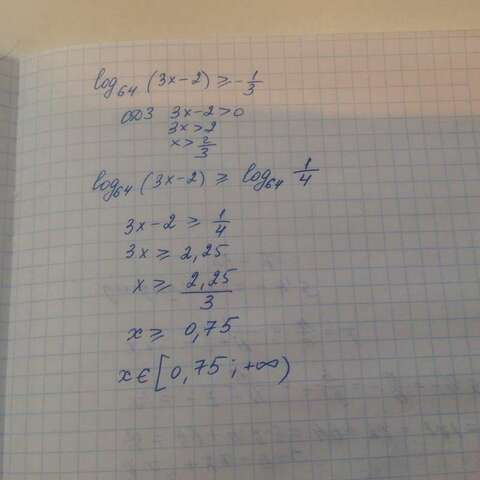 log₆₄ (3x-2) ≥ -1/3
ОДЗ 3x-2>0
3x>2
x>2/3
log₆₄ (3x-2) ≥ log₆₄ 1/4
3x-2 ≥ 1/4
3x ≥ 2,25
x ≥ 2,25/3
x ≥ 0,75
x ∈ [0,75; +∞)